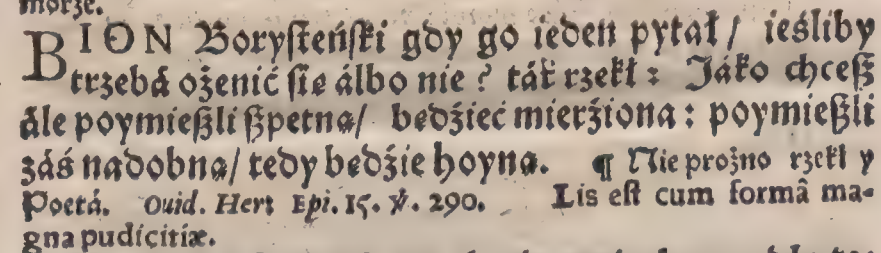 morze.
BION Borysteński gdy go ieden pytał / ieśliby
trzebá ożenić się álbo nie ? ták rzekł : Jáko chcesz
ále poymieszli szpetną / będźieć mierźiona : poymieszli
záś nadobną / tedy będźie hoyna. ¶ Nie prożno rzekł y
Poetá. Ouid. Hero Epi. 15. ℣. 290. Lis est cum formâ ma-
gna pudicitiæ.